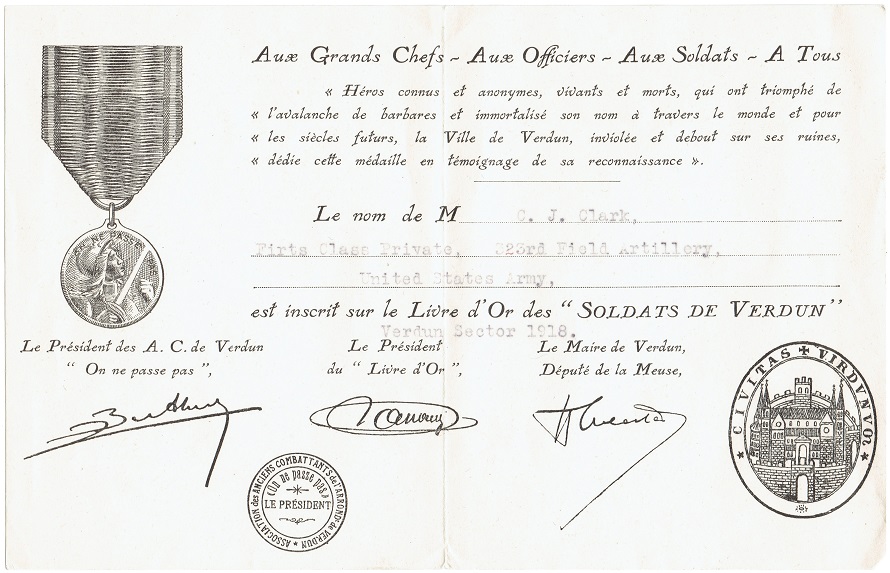 ON NE PASSE PAS
Aux Grands Chefs ~ Aux Officiers ~ Aux Soldats ~ A Tous
« Héros connus et anonymes, vivants et morts, qui ont triomphé de
« l'avalanche de barbares et immortalisé son nom à travers le monde et pour
« les siècles futurs, la Ville de Verdun, inviolée et debout sur ses ruines,
« dédie cette médaille en témoignage de sa reconnaissance ».
Le nom de M C. J. Clark,
Firts Class Private, 323rd Field Artillery,
United States Army,
est inscrit sur le Livre d'Or des " SOLDATS DE VERDUN "
Verdun Sector 1918.
Le Président des A. C. de Verdun
" On ne passe pas ",
Le Président
du " Livre d'Or ",
Le Maire de Verdun,
Député de la Meuse,
ASSOCIATION des ANCIENS COMBATTANTS de l'ARRONDt de VERDUN
On ne passe pas
LE PRÉSIDENT
CIVITAS VIRDVNVM